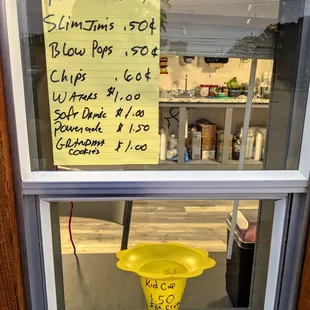 Slim Jims .50¢
Blow Pops .50¢
Chips .60¢
Waters $1.00
Soft Drink $1.00
Powerade $1.50
Grandma $1.00
Cookies
Kid Cup
1.50